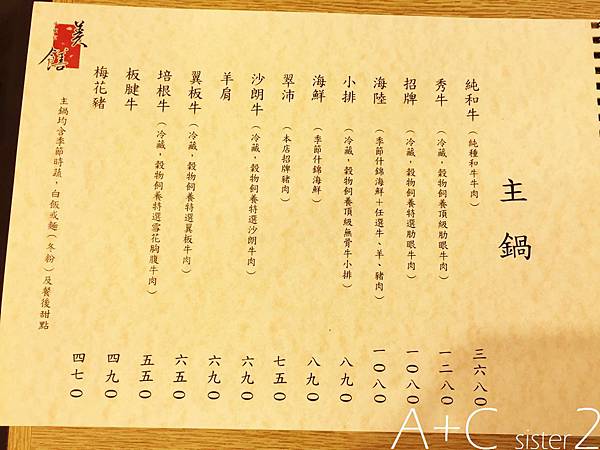 主鍋
純和牛（純種和牛牛肉） 三六八〇
秀牛（冷藏，穀物飼養頂級肋眼牛肉） 一二八〇
招牌（冷藏，穀物飼養特選肋眼牛肉） 一〇八〇
海陸（季節什錦海鮮＋任選牛、羊、豬肉） 一〇八〇
小排（冷藏，穀物飼養頂級無骨牛小排） 八九〇
海鮮（季節什錦海鮮） 八九〇
翠沛（本店招牌豬肉） 七五〇
沙朗牛（冷藏，穀物飼養特選沙朗牛肉） 六九〇
羊肩 六九〇
翼板牛（冷藏，穀物飼養特選翼板牛肉） 六五〇
培根牛（冷藏，穀物飼養特選雪花胸腹牛肉） 五五〇
板腱牛 四九〇
梅花豬 四七〇
主鍋均含季節時蔬，白飯或麵（冬粉）及餐後甜點
美饍
A+C sister2